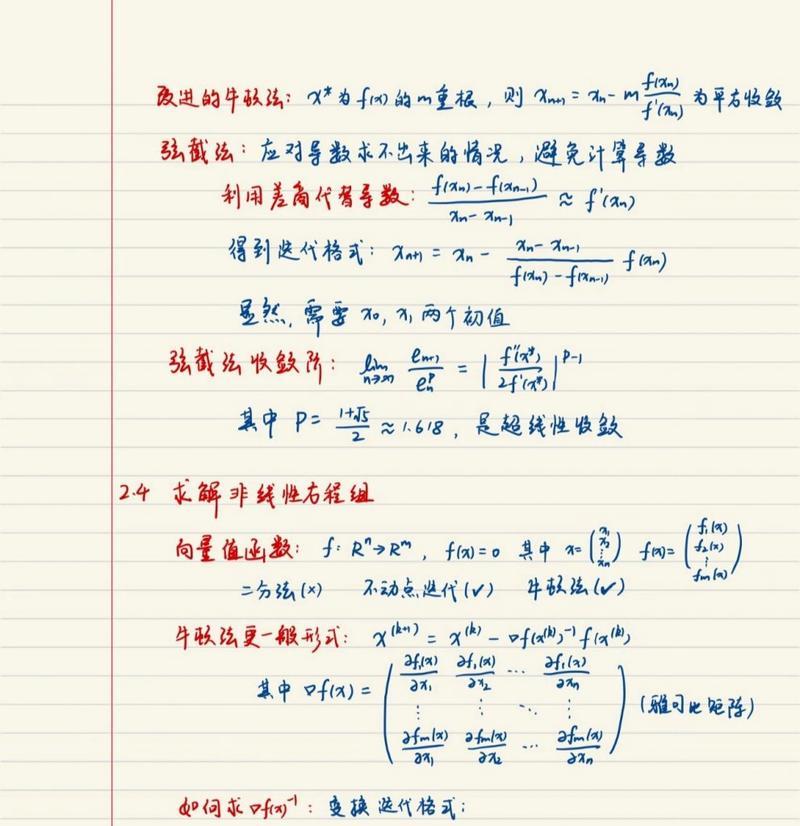 改进的牛顿法: x* 为 f(x) 的 m重根, 则 xₙ₊₁ = xₙ - m f(xₙ)/f'(xₙ) 为平方收敛
弦截法: 应对导数求不出来的情况, 避免计算导数
利用差商代替导数: (f(xₙ)-f(xₙ₋₁))/(xₙ-xₙ₋₁) ≈ f'(xₙ)
得到迭代格式: xₙ₊₁ = xₙ - (xₙ-xₙ₋₁)/(f(xₙ)-f(xₙ₋₁)) f(xₙ)
显然, 需要 x₀, x₁ 两个初值
弦截法收敛阶: lim n→∞ eₙ₊₁/eₙᵖ = |f''(x*)/2f'(x*)|^(p-1)
其中 P = (1+√5)/2 ≈ 1.618, 是超线性收敛
2.4 求解非线性方程组
向量值函数: f: Rⁿ→Rᵐ, f(x)=0 其中 x=(x₁ x₂ ⋮ xₙ) f(x)=(f₁(x) f₂(x) ⋮ fₘ(x))
二分法(×) 不动点迭代(✓) 牛顿法(✓)
牛顿法更一般形式: x⁽ᵏ⁺¹⁾ = x⁽ᵏ⁾ - ∇f(x⁽ᵏ⁾)⁻¹ f(x⁽ᵏ⁾)
其中 ∇f(x) = (∂f₁(x)/∂x₁ ∂f₁(x)/∂x₂ … ∂f₁(x)/∂xₙ
⋮ ⋮ ⋱ ⋮
∂fₘ(x)/∂x₁ ∂fₘ(x)/∂x₂ … ∂fₘ(x)/∂xₙ) (雅可比矩阵)
如何求 ∇f(x)⁻¹: 变换迭代格式: